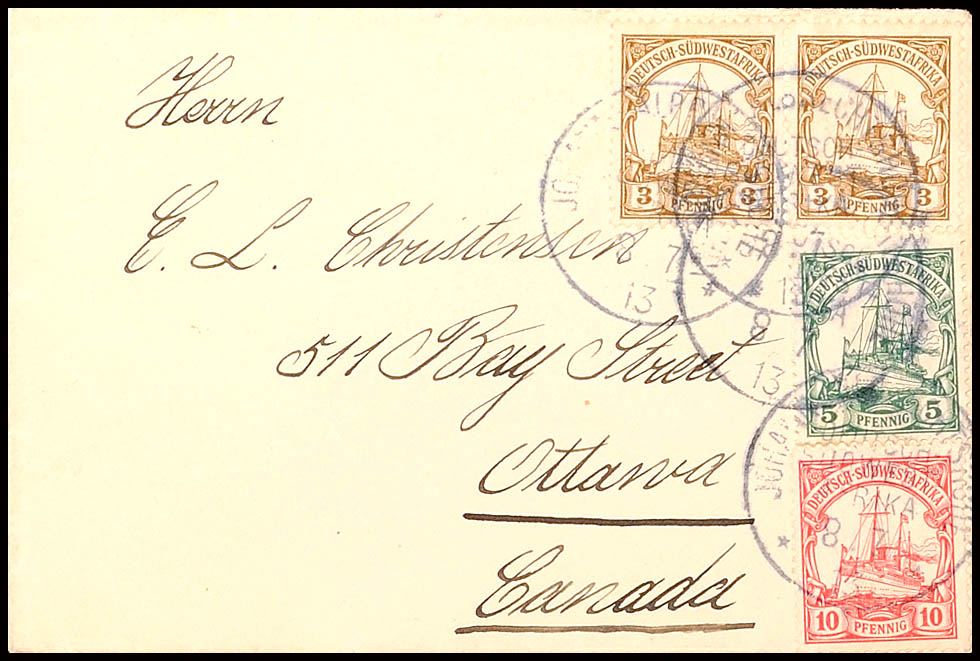 Herrn
E. L. Christensen
511 Bay Street
Ottawa
Canada
DEUTSCH-SÜDWESTAFRIKA
3 PFENNIG 3
DEUTSCH-SÜDWESTAFRIKA
3 PFENNIG 3
DEUTSCH-SÜDWESTAFRIKA
5 PFENNIG 5
DEUTSCH-SÜDWESTAFRIKA
10 PFENNIG 10
7
13
8
13
8